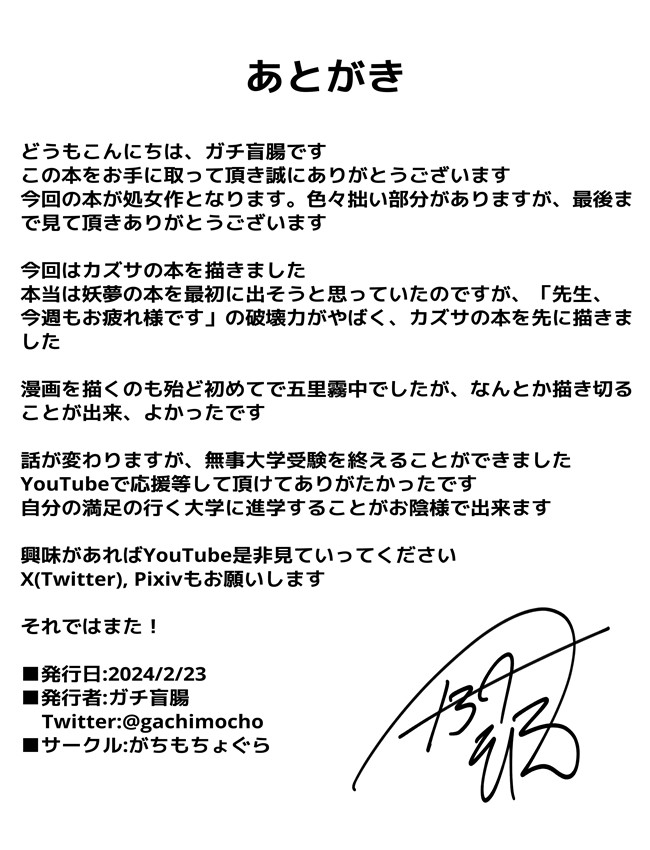 あとがき
どうもこんにちは、ガチ盲腸です
この本をお手に取って頂き誠にありがとうございます
今回の本が処女作となります。色々拙い部分がありますが、最後ま
で見て頂きありがとうございます
今回はカズサの本を描きました
本当は妖夢の本を最初に出そうと思っていたのですが、「先生、
今週もお疲れ様です」の破壊力がやばく、カズサの本を先に描きま
した
漫画を描くのも殆ど初めてで五里霧中でしたが、なんとか描き切る
ことが出来、よかったです
話が変わりますが、無事大学受験を終えることができました
YouTubeで応援等して頂けてありがたかったです
自分の満足の行く大学に進学することがお陰様で出来ます
興味があればYouTube是非見ていってください
X(Twitter), Pixivもお願いします
それではまた！
■発行日:2024/2/23
■発行者:ガチ盲腸
Twitter:@gachimocho
■サークル:がちもちょぐら